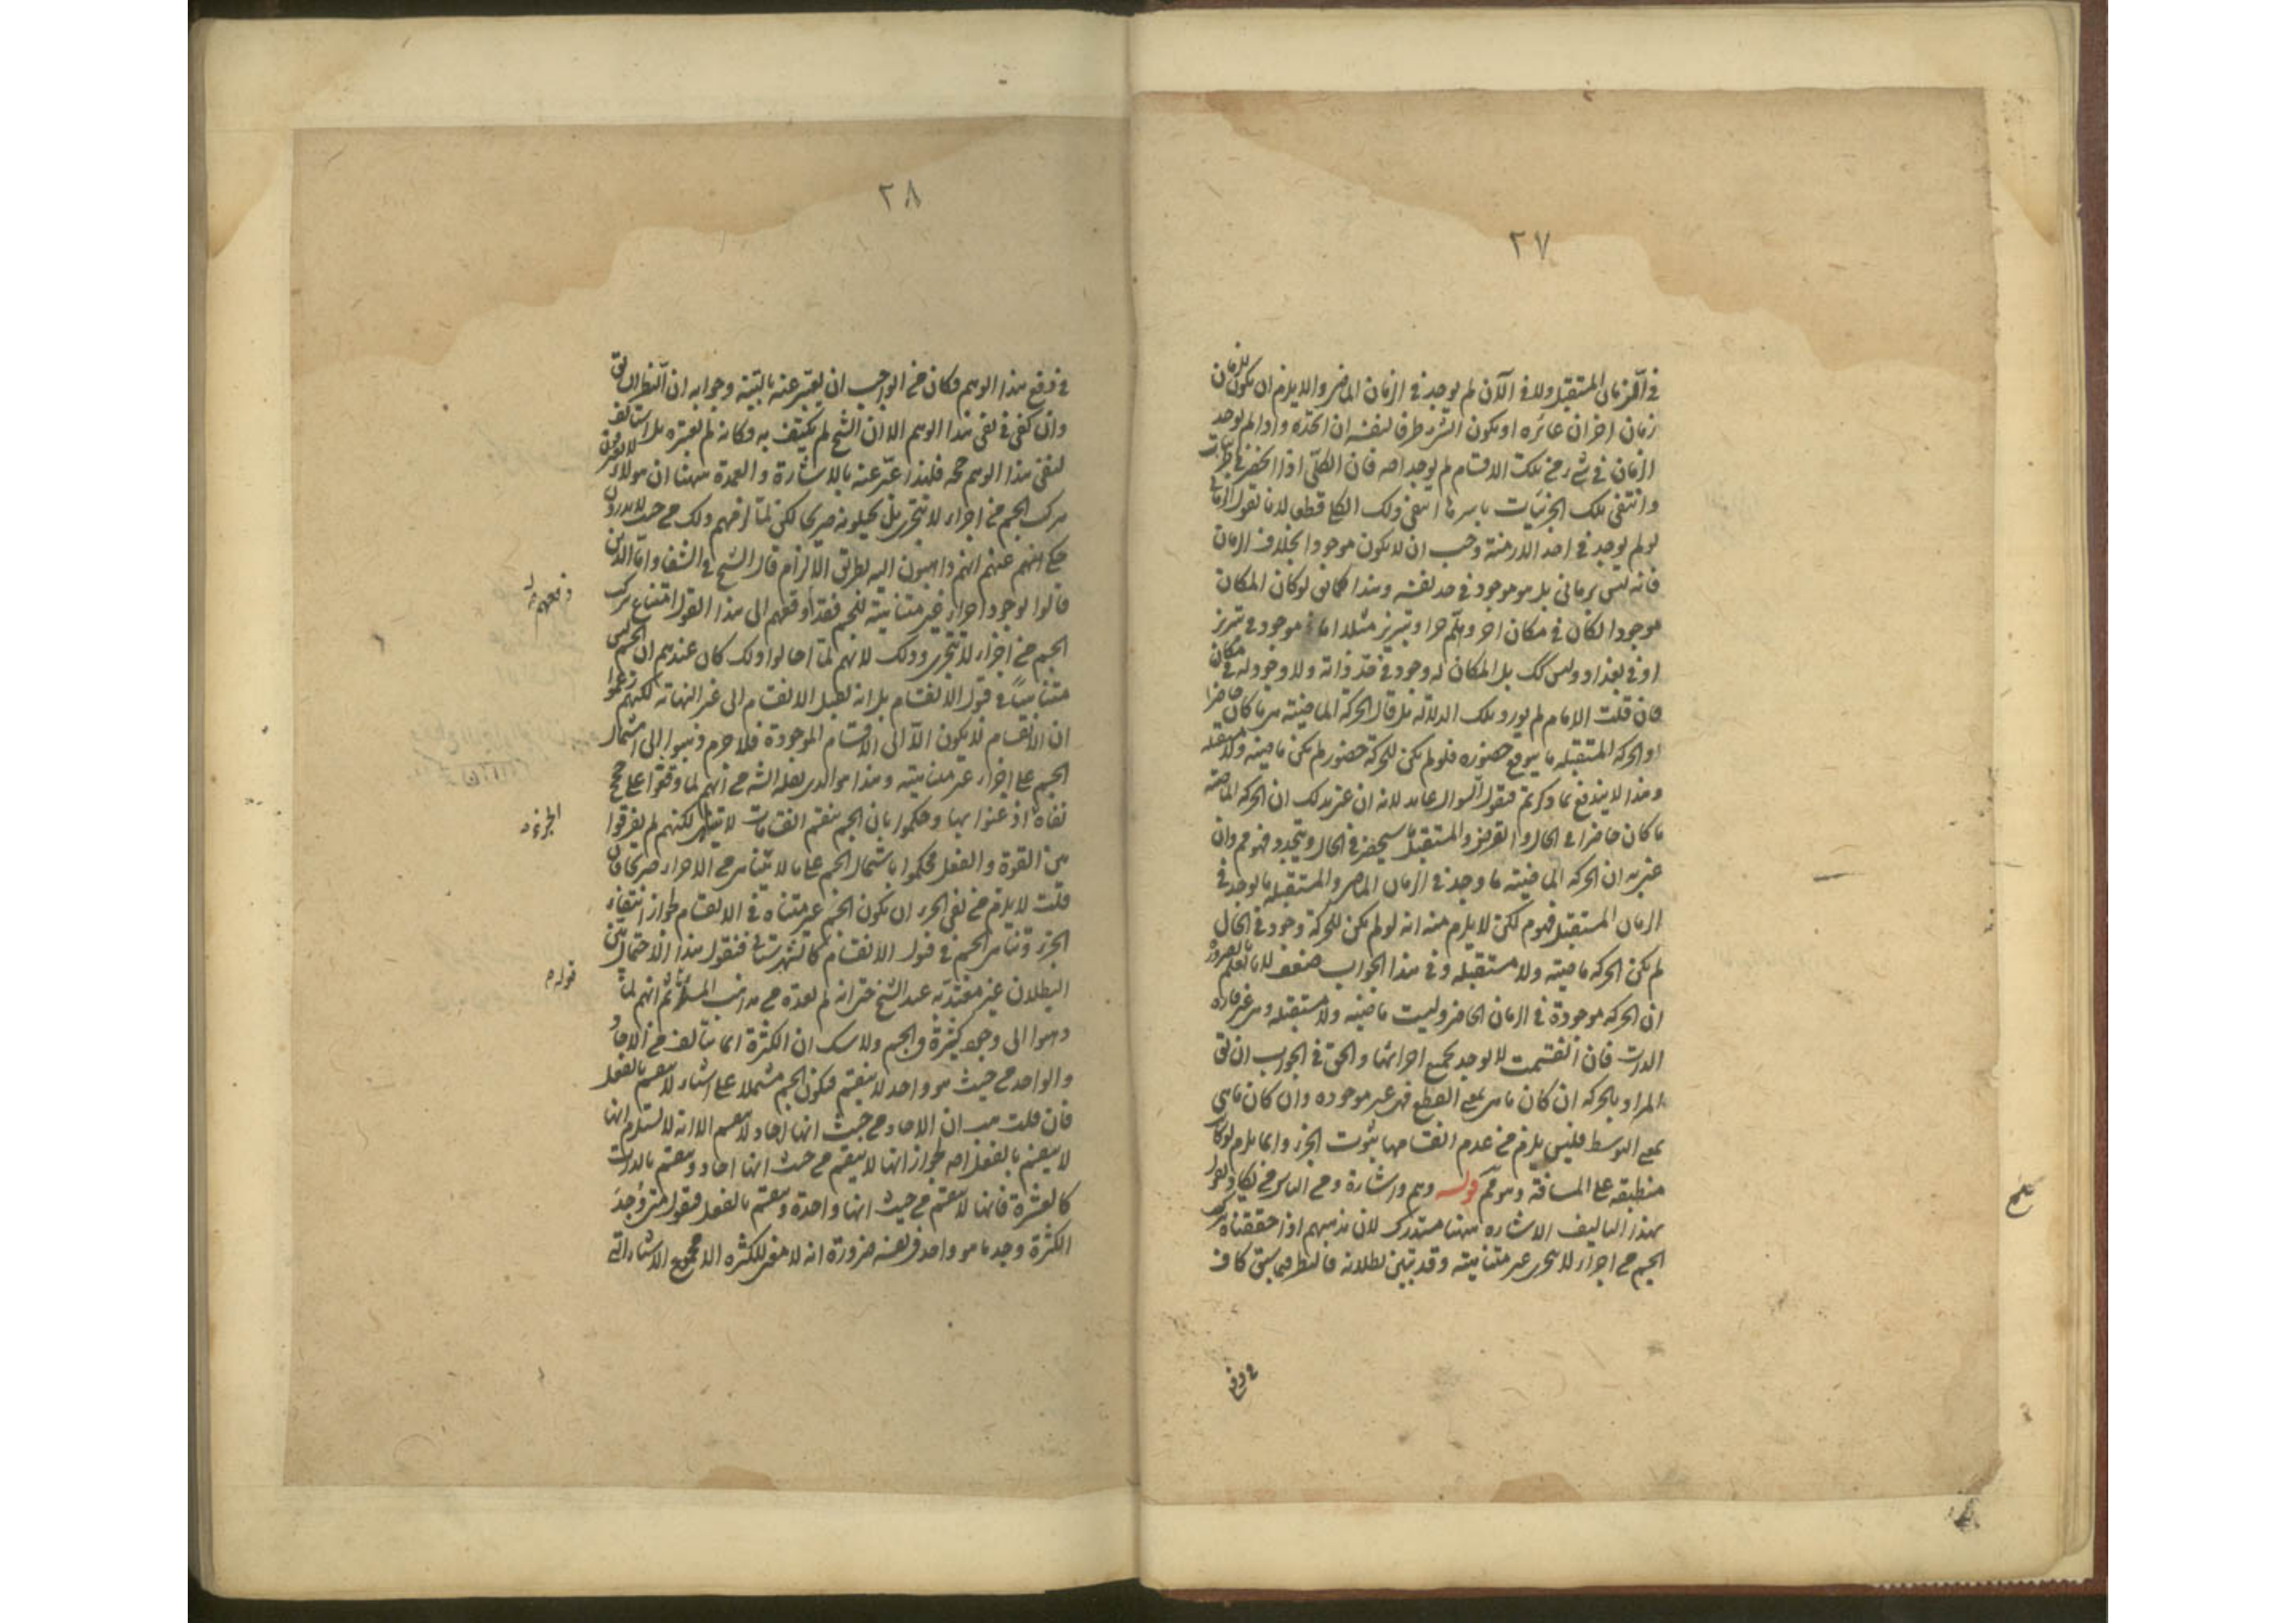 ٢٧
في الزمان المستقبل ولا في الآن لم يوجد في الزمان الماضي والا يلزم ان يكون للزمان
زمان اخر ان غايره او يكون الشيء ظرفا لنفسه ان اتحد به واذا لم يوجد
الزمان في شيء من تلك الاقسام لم يوجد اصلا فان الكلي اذا انحصر في جزئيات
وانتفى تلك الجزئيات باسرها انتفى ذلك الكلي قطعا لانا نقول الزماني
لو لم يوجد في احد الازمنة وجب ان لا يكون موجودا بخلاف الزمان
فانه ليس بزماني بل هو موجود في حد نفسه وهذا كما يق لو كان المكان
موجودا لكان في مكان اخر وهلم جرا وتبريز مثلا اما موجود في تبريز
او في بغداد وليس كك بل المكان له وجود في حد ذاته ولا وجود له في مكان
فان قلت الامام لم يورد تلك الدلالة بل قال الحركة الماضية هي ما كان حاضرا
والحركة المستقبلة ما يتوقع حضوره فلو لم يكن للحركة حضور لم يكن ماضية ولا مستقبلة
وهذا لا يندفع بما ذكرتم فنقول السؤال عايد لانه ان عنى بذلك ان الحركة الماضية
ما كان حاضرا في الحال والمستقبل ما سيحضر في الحال ويتجدد فهو مم وان
عنى به ان الحركة الماضية ما وجد في الزمان الماضي والمستقبلة ما يوجد في
الزمان المستقبل فهو م لكن لا يلزم منه انه لو لم يكن للحركة وجود في الحال
لم تكن الحركة ماضية ولا مستقبلة وفي هذا الجواب ضعف لانا نعلم بالضرورة
ان الحركة موجودة في الزمان الحاضر وليست ماضية ولا مستقبلة وهي غير قارة
الذات فان انقسمت لا يوجد بجميع اجزائها والحق في الجواب ان يق
المراد بالحركة ان كان ما هي بمعنى القطع فهي غير موجودة وان كان ما هي
بمعنى التوسط فليس يلزم من عدم انقسامها ثبوت الجزء وانما يلزم لو كان
منطبقة على المسافة وهو مم قوله وهم واشارة ومن الناس من يكاد يقول
بهذا التاليف الاشارة ههنا مستدرك لان مذهبهم اذا حققناه تركب
الجسم من اجزاء لا تتجزى غير متناهية وقد تبين بطلانه فالنظر فيما سبق كاف
في دفع
٢٨
في دفع هذا الوهم فكان من الواجب ان يعبر عنه بالتنبيه وجوابه ان النظر السابق
وان كفى في نفي هذا الوهم الا ان الشيخ لم يكتف به وكانه لم يعتبره بل استانف
لنفي هذا الوهم حجة فلهذا عبر عنه بالاشارة والعمدة ههنا ان هؤلاء لا يعترفون
تركب الجسم من اجزاء لا تتجزى بل يحيلونه صريحا لكن لما لزمهم ذلك من حيث لا يدرون
حكى عنهم انهم ذاهبون اليه بطريق الالزام قال الشيخ في الشفا واما الذين
قالوا بوجود اجزاء غير متناهية للجسم فقد اوقعهم الى هذا القول امتناع تركب
الجسم من اجزاء لا تتجزى وذلك لانهم لما احالوا ذلك كان عندهم ان الجسم ليس
متناهيا في قبول الانقسام بل انه يقبل الانقسام الى غير النهاية لكنهم زعموا
ان الانقسام لا يكون الا الى الاقسام الموجودة فلا جرم ذهبوا الى اشتمال
الجسم على اجزاء غير متناهية وهذا هو الذي نقله الشيخ من انهم لما وقفوا على حجج
نفاة اذعنوا بها وحكموا بان الجسم ينقسم انقسامات لا تتناهى لكنهم لم يفرقوا
بين القوة والفعل فحكموا باشتمال الجسم على ما لا يتناهى من الاجزاء صريحا فان
قلت لا يلزم من نفي الجزء ان يكون الجسم غير متناه في الانقسام لجواز انتفاء
الجزء وتناهي الجسم في قبول الانقسام كالشهرستاني فنقول هذا الاحتمال بين
البطلان غير معتد به عند الشيخ حتى انه لم يعده من مذاهب المسئلة ثم انهم لما
ذهبوا الى وجود كثرة في الجسم ولا شك ان الكثرة انما يتالف من الاحاد
والواحد من حيث هو واحد لا ينقسم فيكون الجسم مشتملا على اشياء لا ينقسم بالفعل
فان قلت هب ان الاحاد من حيث انها احاد لا ينقسم الا انه لا يستلزم انها
لا ينقسم بالفعل اصلا لجواز انها لا ينقسم من حيث انها احاد وينقسم بالذات
كالعشرة فانها لا ينقسم من حيث انها واحدة وينقسم بالفعل فنقول متى وجد
الكثرة وجد ما هو واحد في نفسه ضرورة انه لا معنى للكثرة الا مجموع الاشياء التي
الجزء
قوله